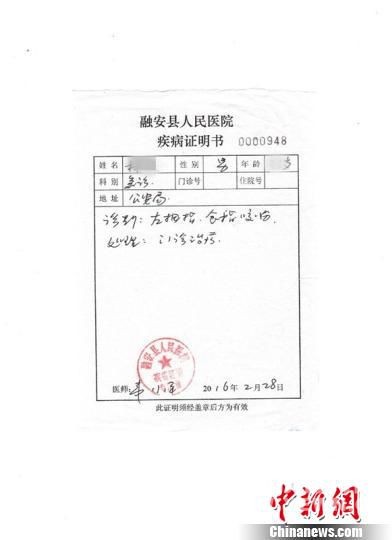 融安县人民医院
疾病证明书 0000948
姓名 性别 男 年龄 岁
科别 急诊 门诊号 住院号
地址 公安局
诊断：左拇指、食指咬伤
处理：门诊治疗
融安县人民医院
医师： 2016年2月28日
此证明须经盖章后方为有效
中新网
www.chinanews.com